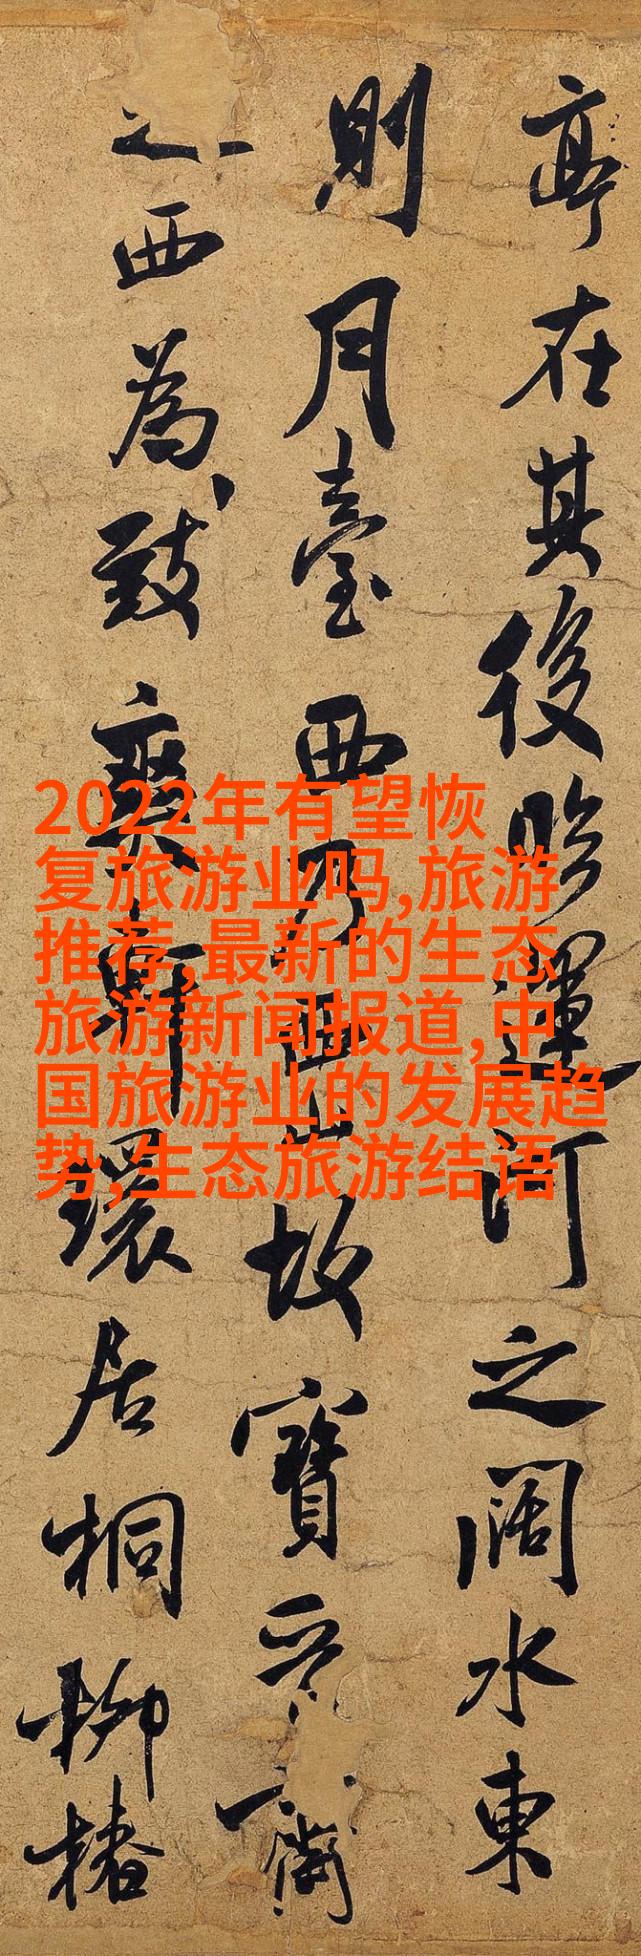 亭在其後眕運河之闊水東
則月臺西乃西山故寶晉齋
之西為致爽軒環居桐柳椿
2022年有望恢
复旅游业吗,旅游
推荐,最新的生态
旅游新闻报道,中
国旅游业的发展趋
势,生态旅游结语